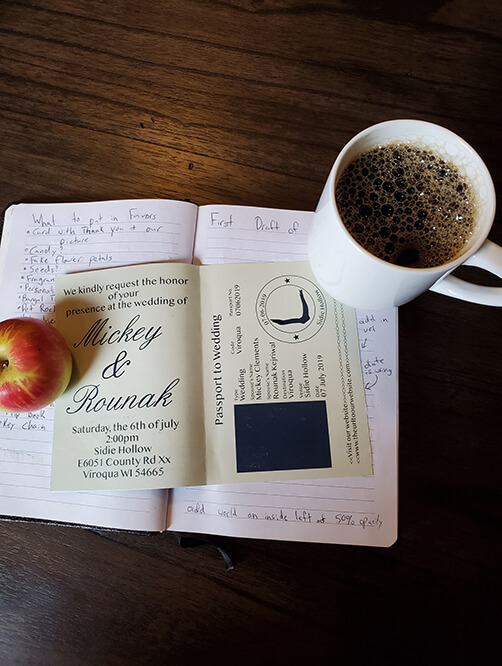 What to put in Favors
• Card with Thank you + our
picture
• Candy?
• Fake flower petals
• Seeds?
First Draft of
We kindly request the honor
of your
presence at the wedding of
Mickey
&
Rounak
Saturday, the 6th of july
2:00pm
Sidie Hollow
E6051 County Rd Xx
Viroqua WI 54665
Passport to Wedding
Type
Wedding
Code
Viroqua
Passport No.
07062019
Spouse's Name
Mickey Clements
Spouse's Name
Rounak Kejriwal
Destination
Viroqua
Venue
Sidie Hollow
Date
07 July 2019
07.06.2019
Sidie Hollow
<<Visit our website>>>>
add in
key chain
add world on inside left at 50% opacity